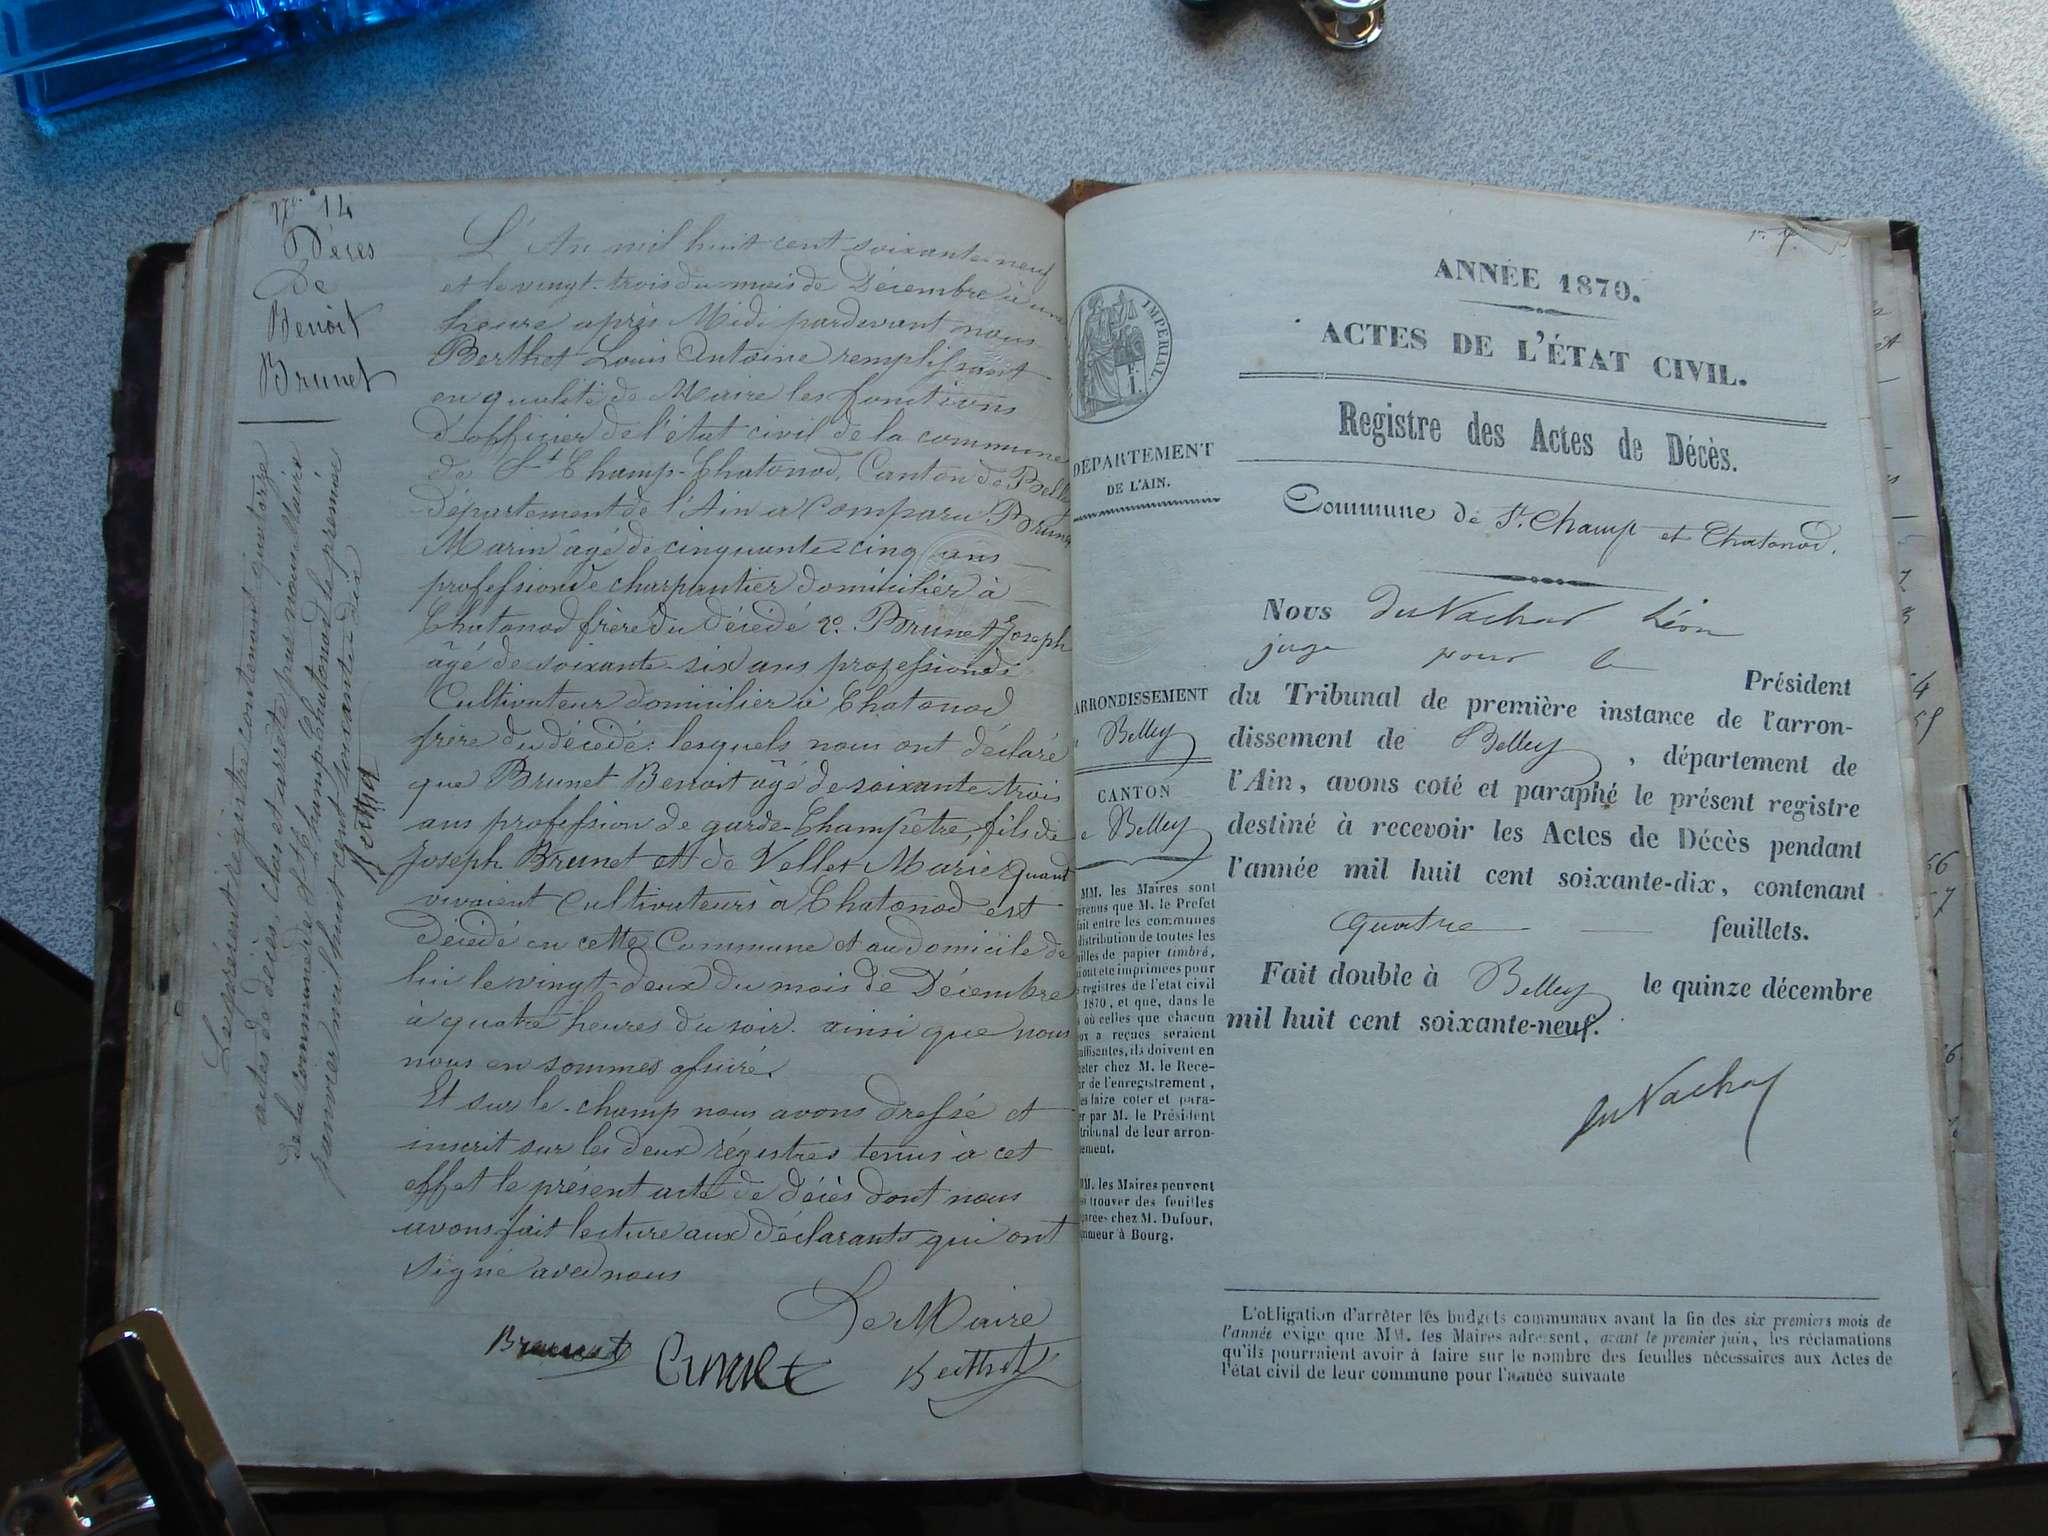 N°. 14
Décès
De
Benoit
Brunet
L'An mil huit cent soixante-neuf
et le vingt-trois du mois de Décembre à une
heure après Midi pardevant nous
Berthet Louis Antoine remplissant
en qualité de Maire les fonctions
d'officier de l'état civil de la commune
de St Champ-Chatonod, Canton de Belley
Département de l'Ain a Comparu Brunet
Marin âgé de cinquante cinq ans
profession de charpantier domicilier à
Chatonod frère du décédé 2º. Brunet Joseph
âgé de soixante-six ans profession de
Cultivateur domicilier à Chatonod
frère du décédé: lesquels nous ont déclaré
que Brunet Benoit âgé de soixante trois
ans profession de garde-Champêtre, fils de
Joseph Brunet et de Vellet Marie quand
vivaient Cultivateurs à Chatonod est
décédé en cette Commune et au domicile de
lui le vingt-deux du mois de Décembre
à quatre heures du soir. ainsi que nous
nous en sommes assuré.
Et sur le-champ nous avons dressé et
inscrit sur les deux régistres tenus à cet
effet le présent acte de décès dont nous
avons fait lecture aux déclarants qui ont
signé avec nous
Le Maire
Brunet
Berthet
Le présent régistre contenant quatorze
actes de décès, clos et arrêté par nous Maire
de la commune de St Champ Chatonod le premier
janvier mil huit cent soixante-dix
Berthet
ANNÉE 1870.
ACTES DE L'ÉTAT CIVIL.
Registre des Actes de Décès.
Commune de St. Champ et Chatonod.
IMPERIAL.
DÉPARTEMENT
DE L'AIN.
ARRONDISSEMENT
Belley
CANTON
Belley
MM. les Maires sont
que M. le Préfet
fait entre les communes
distribution de toutes les
de papier timbré,
ont été imprimées pour
registres de l'état civil
1870, et que, dans le
où celles que chacun
a reçues seraient
ils doivent en
chez M. le Rece-
de l'enregistrement,
faire coter et para-
par M. le Président
tribunal de leur arron-
MM. les Maires peuvent
trouver des feuilles
chez M. Dufour,
à Bourg.
Nous Du Nachat Léon
juge pour le Président
du Tribunal de première instance de l'arron-
dissement de Belley, département de
l'Ain, avons coté et paraphé le présent registre
destiné à recevoir les Actes de Décès pendant
l'année mil huit cent soixante-dix, contenant
Quatre feuillets.
Fait double à Belley le quinze décembre
mil huit cent soixante-neuf.
Du Nachat
L'obligation d'arrêter les budgets communaux avant la fin des six premiers mois de
l'année exige que MM. les Maires adressent, avant le premier juin, les réclamations
qu'ils pourraient avoir à faire sur le nombre des feuilles nécessaires aux Actes de
l'état civil de leur commune pour l'année suivante